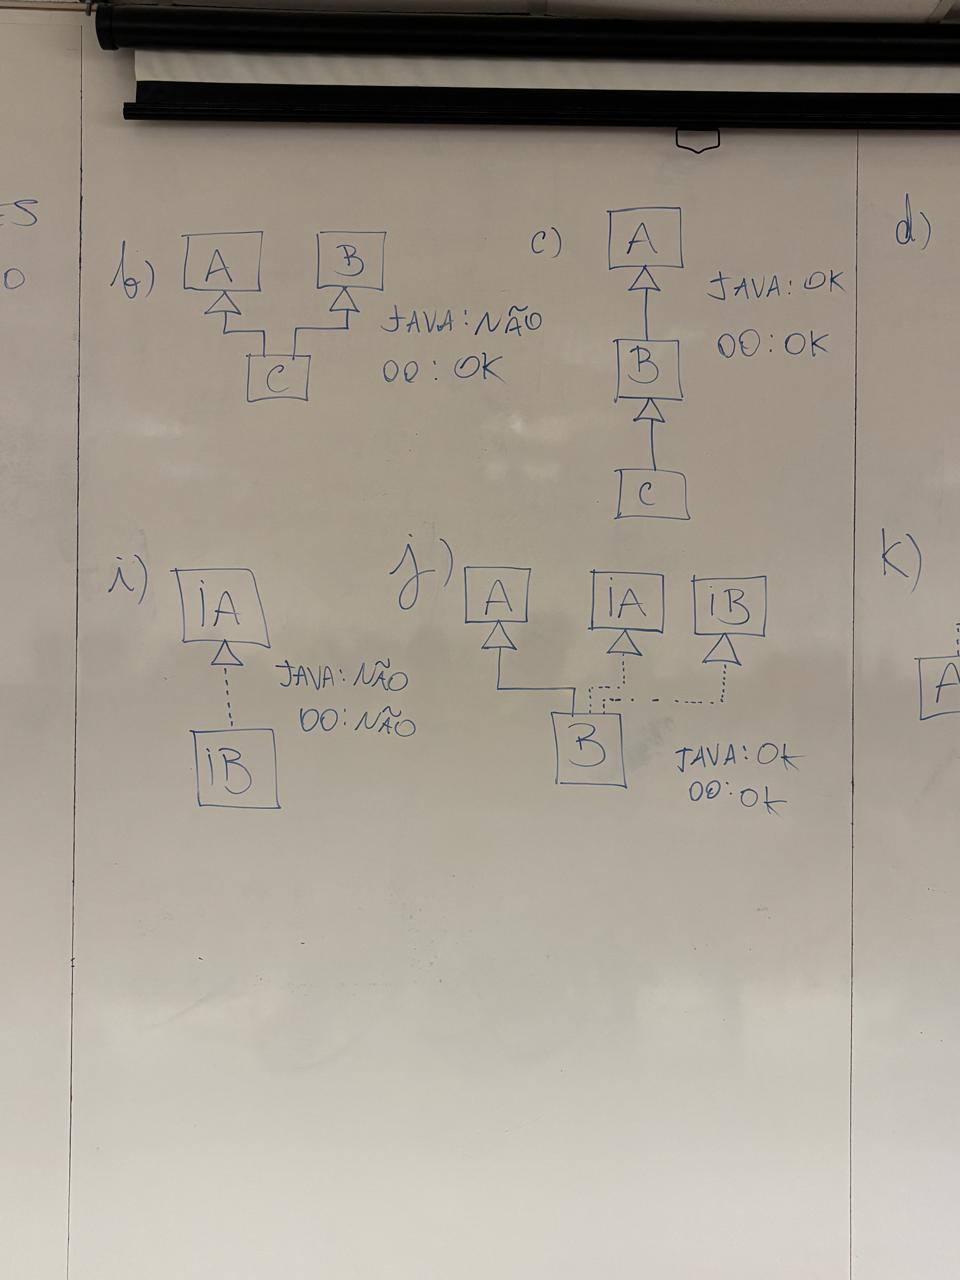 ES
O
b)
A
B
JAVA: NÃO
OO: OK
C
c)
A
JAVA: OK
OO: OK
B
C
d)
i)
iA
JAVA: NÃO
OO: NÃO
iB
j)
A
iA
iB
B
JAVA: OK
OO: OK
k)
A